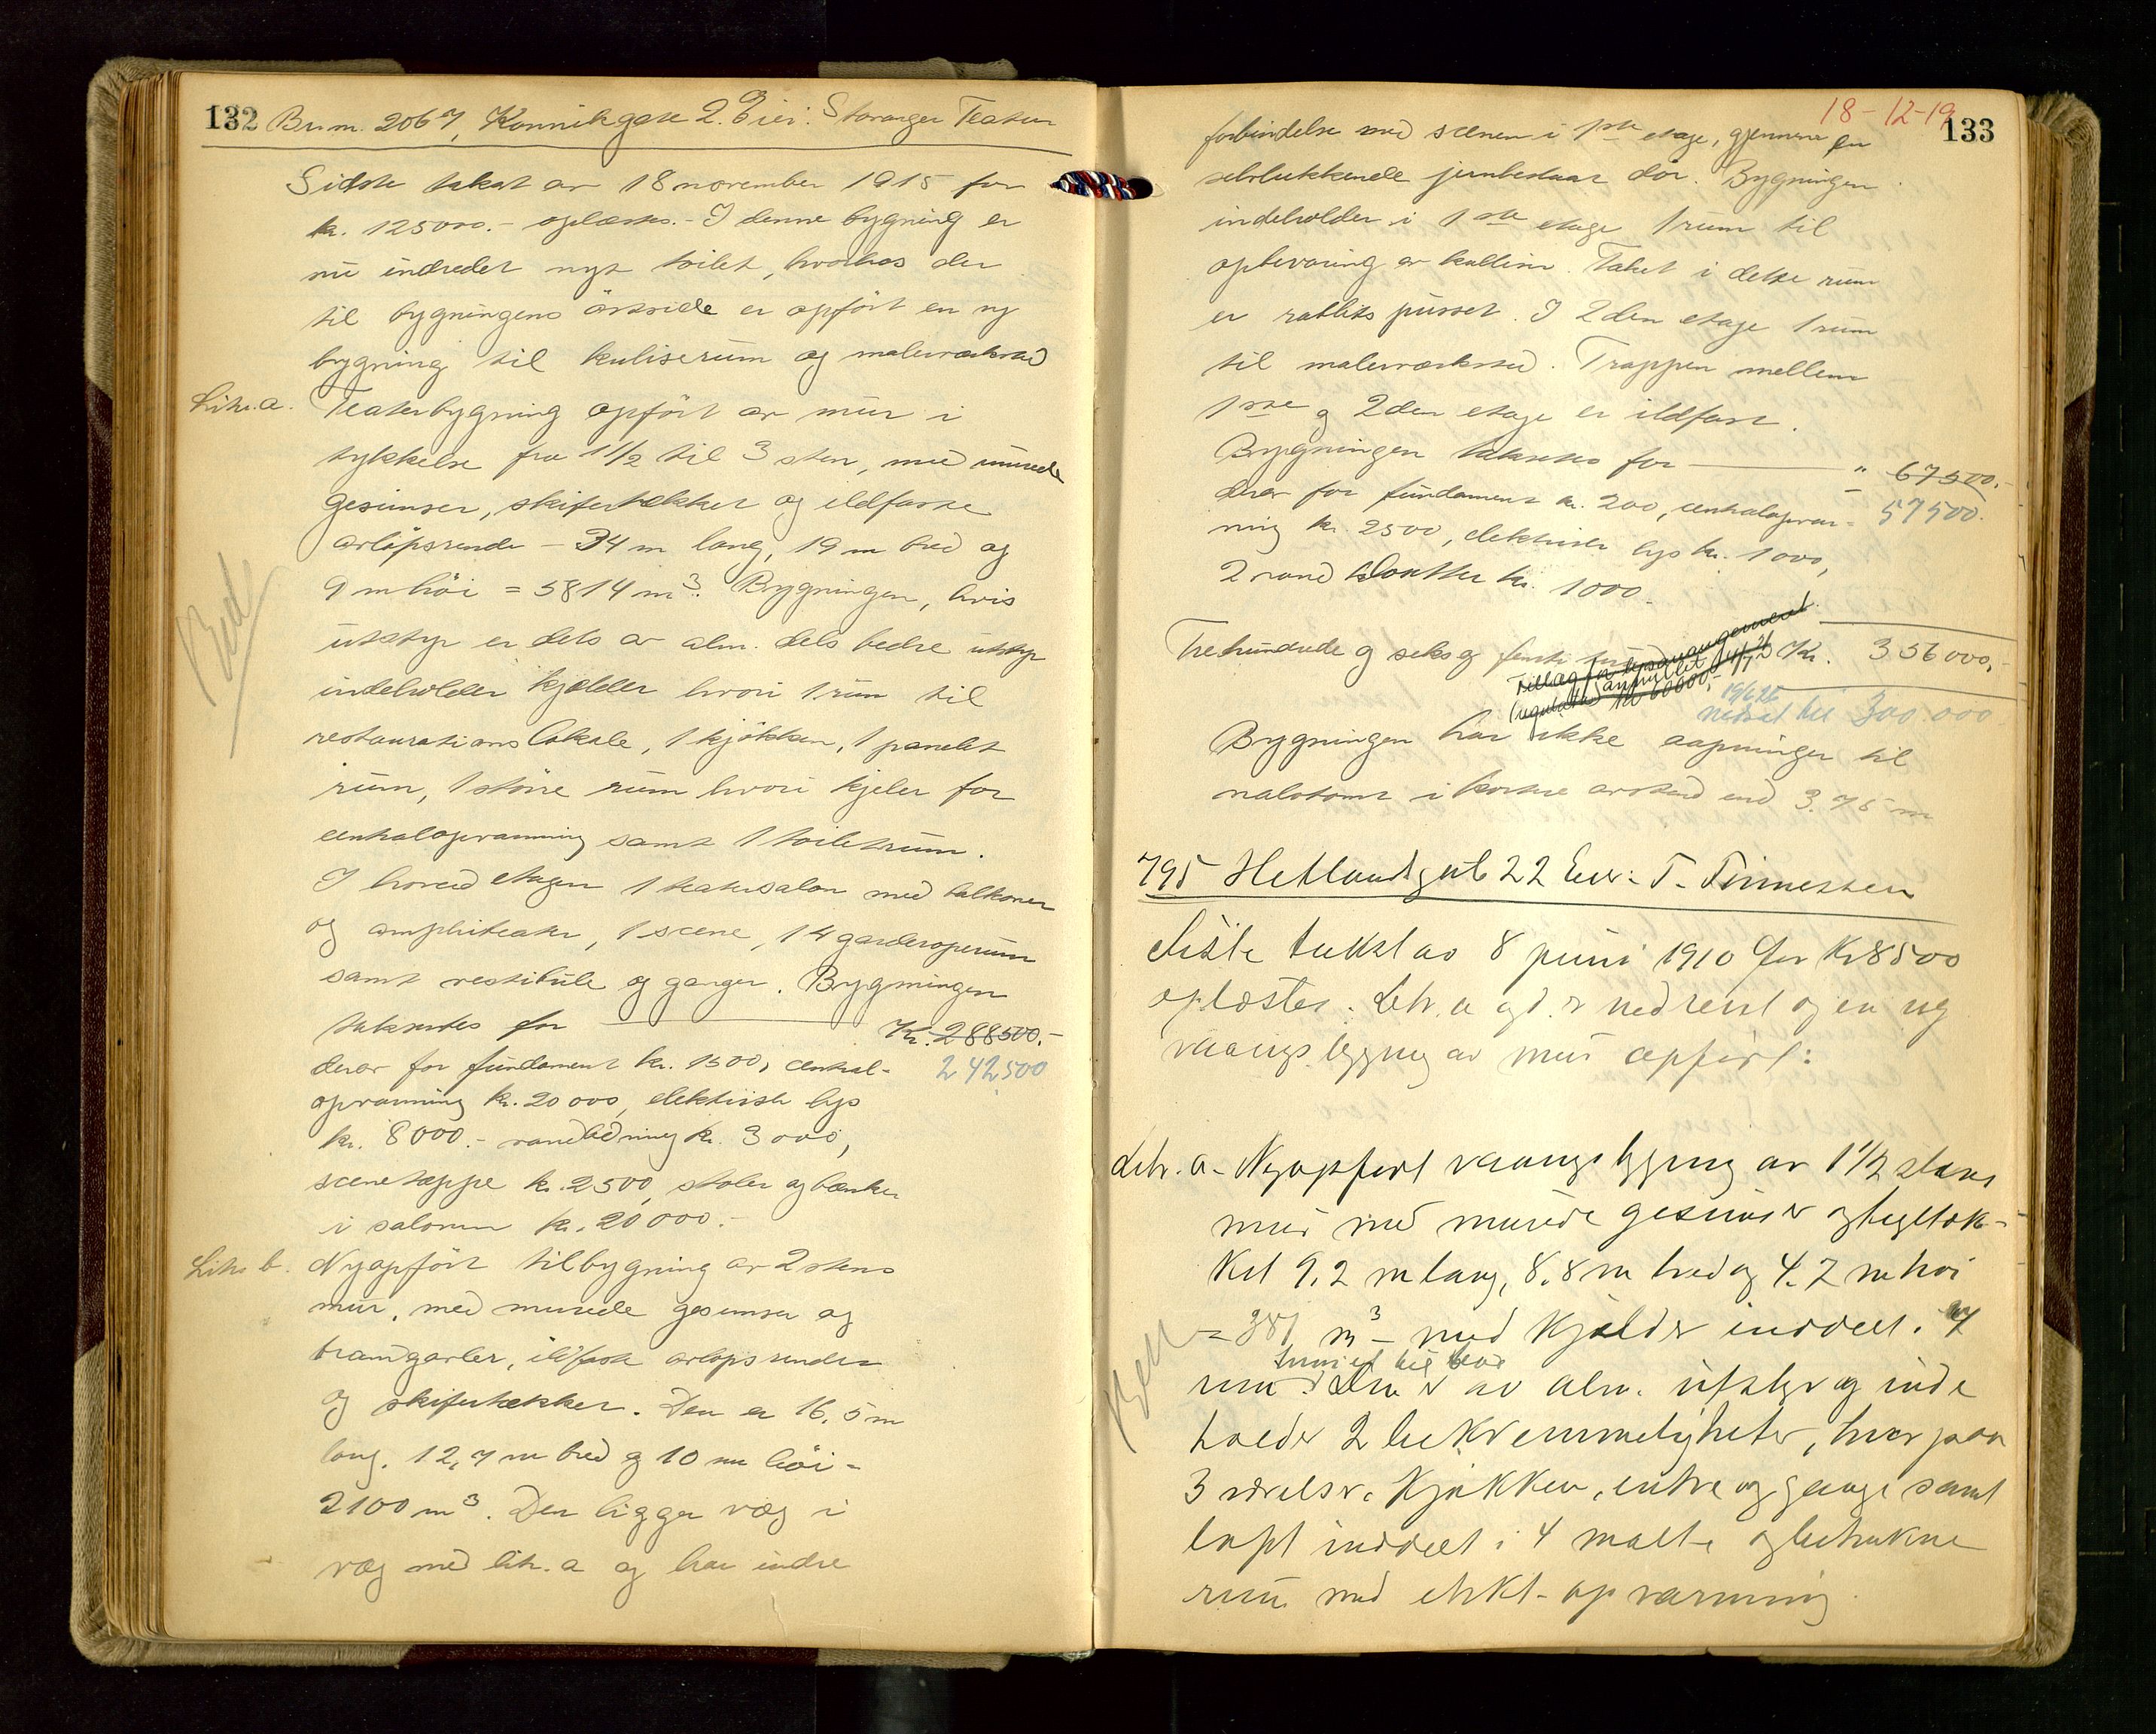 132 Br.nr. 2067, Kannikgate 2. Eier: Stavanger Teater
Sidste takst av 18 november 1915 for
kr. 125000.- oplæstes.- I denne bygning er
nu indredet nyt toilet, hvorhos der
til bygningens östside er opfört en ny
bygning til kuliserum og malerværksted
Litr. a. Teaterbygning opfört av mur i
tykkelse fra 1 1/2 til 3 sten, med murede
gesimser, skifertækket og ildfaste
avlöpsrender - 34 m lang, 19 m bred og
9 m höi = 5814 m3. Bygningen, hvis
utstyr er dels av alm. dels bedre utstyr
indeholder kjælder hvori 1 rum til
restaurationslokale, 1 kjökken, 1 panelet
rum, 1 större rum hvori kjeler for
centralopvarmning samt 1 toiletrum.
I hovedetagen 1 teatersalon med balkoner
og amphiteater, 1 scene, 14 garderoperum
samt vestibule og ganger. Bygningen
takseres for Kr. 288500.-
derav for fundament kr. 1500, central- 242500
opvarmning kr. 20000, elektrisk lys
kr. 8000.- vandledning kr. 3000,
scenetæppe kr. 2500, stoler og bænker
i salonen kr. 20000.-
Litr. b. Nyopfört tilbygning av 2 stens
mur, med murede gesimser og
brandgavler, ildfaste avlöpsrender
og skifertækket. Den er 16,5 m
lang, 12,7 m bred og 10 m höi =
2100 m3. Den ligger væg i
væg med litr. a og har indre
18-12-19
133
forbindelse med scenen i 1ste etage, gjennem en
selvlukkende jernbeslaat dör. Bygningen
indeholder i 1ste etage 1 rum til
opbevaring av kulisser. Taket i dette rum
er rabbits pusset. I 2den etage 1 rum
til malerværksted. Trappen mellem
1ste og 2den etage er ildfast.
Bygningen takseres for " 67500.-
derav for fundament kr. 200, centralopvar- 57500.
ning kr. 2500, elektrisk lys kr. 1000,
2 vand klosetter kr. 1000.
Trehundrede og seks og femti tusen Kr. 356000,-
Tillæg for lysarrangement
annullet
kr 60000,-
nedsat til 300.000
Bygningen har ikke aapninger til
nabotomt i kortere avstand end 3.75 m
795 Hetlandsgate 22 Eier: T. Tönnessen
Siste takst av 8 juni 1910 for Kr 8500
oplæstes. Litr. a og d. er nedrevet og en ny
vaaningsbygning av mur opfört:
Litr. a - Nyopfört vaaningsbygning av 1 1/2 stens
mur med murede gesimser og tegltæk-
ket 9,2 m lang, 8,8 m bred og 4,7 m höi
= 381 m3 - med kjælder inddelt i 4
rum. Den er av alm. utstyr og inde
holder 2 bekvemmeligheter, hver paa
3 værelser, kjökken, entre og gange samt
loft inddelt i 4 malte og betrukne
rum med elekt. opvarmning.